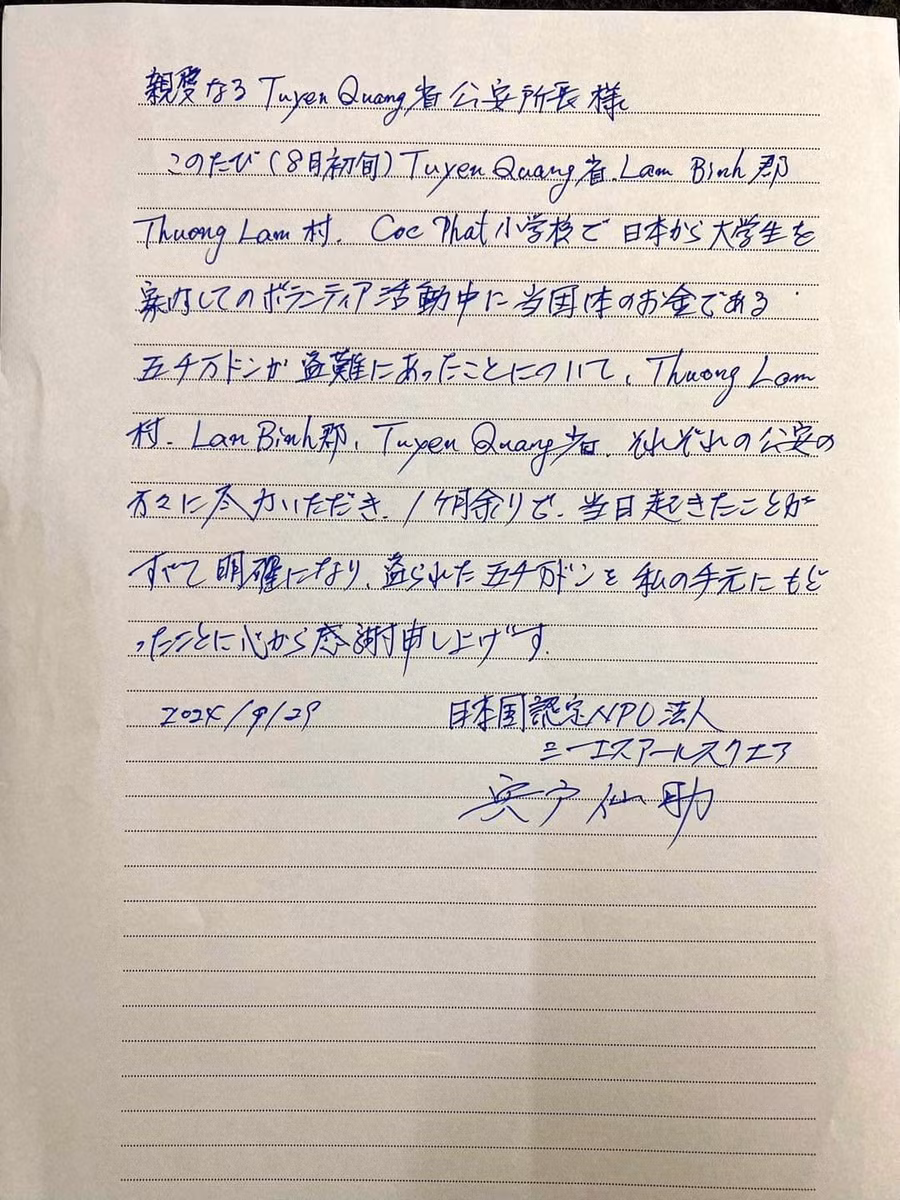 親愛なる Tuyen Quang省公安所長様
このたび(8月初旬)Tuyen Quang省、Lam Binh郡
Thuong Lam村、Coc Phat小学校で日本から大学生を
案内してのボランティア活動中に当団体のお金である
五千万ドンが盗難にあったことについて、Thuong Lam
村、Lan Binh郡、Tuyen Quang省、それぞれの公安の
方々に尽力いただき、1ヶ月余りで、当日起きたことが
すべて明確になり、盗られた五千万ドンを私の手元にもど
ったことに心から感謝申し上げます。
2024/9/29 日本国認定NPO法人
シーエスアールスクエア
宍戸仙助